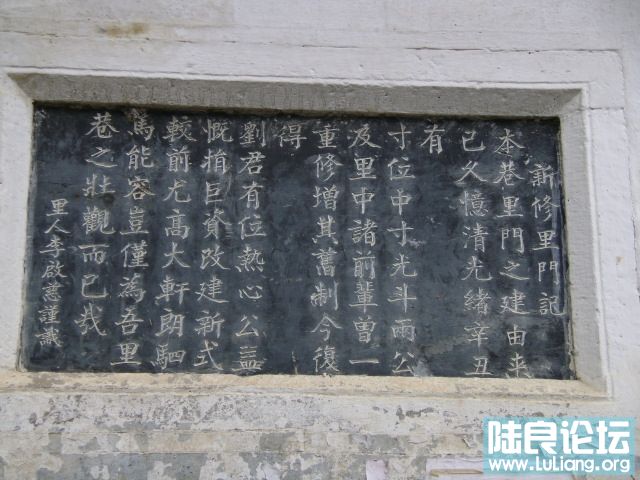 新修里門記
本巷里門之建由来
已久憶清光緒辛丑
有
寸位中寸光斗兩公
及里中諸前輩曾一
重修增其舊制今復
得
劉君有位熱心公益
慨捐巨資改建新式
較前尤高大軒朗駟
馬能容豈僅為吾里
巷之壯觀而已哉
里人李啟慈謹識
陆良论坛
www.luliang.org